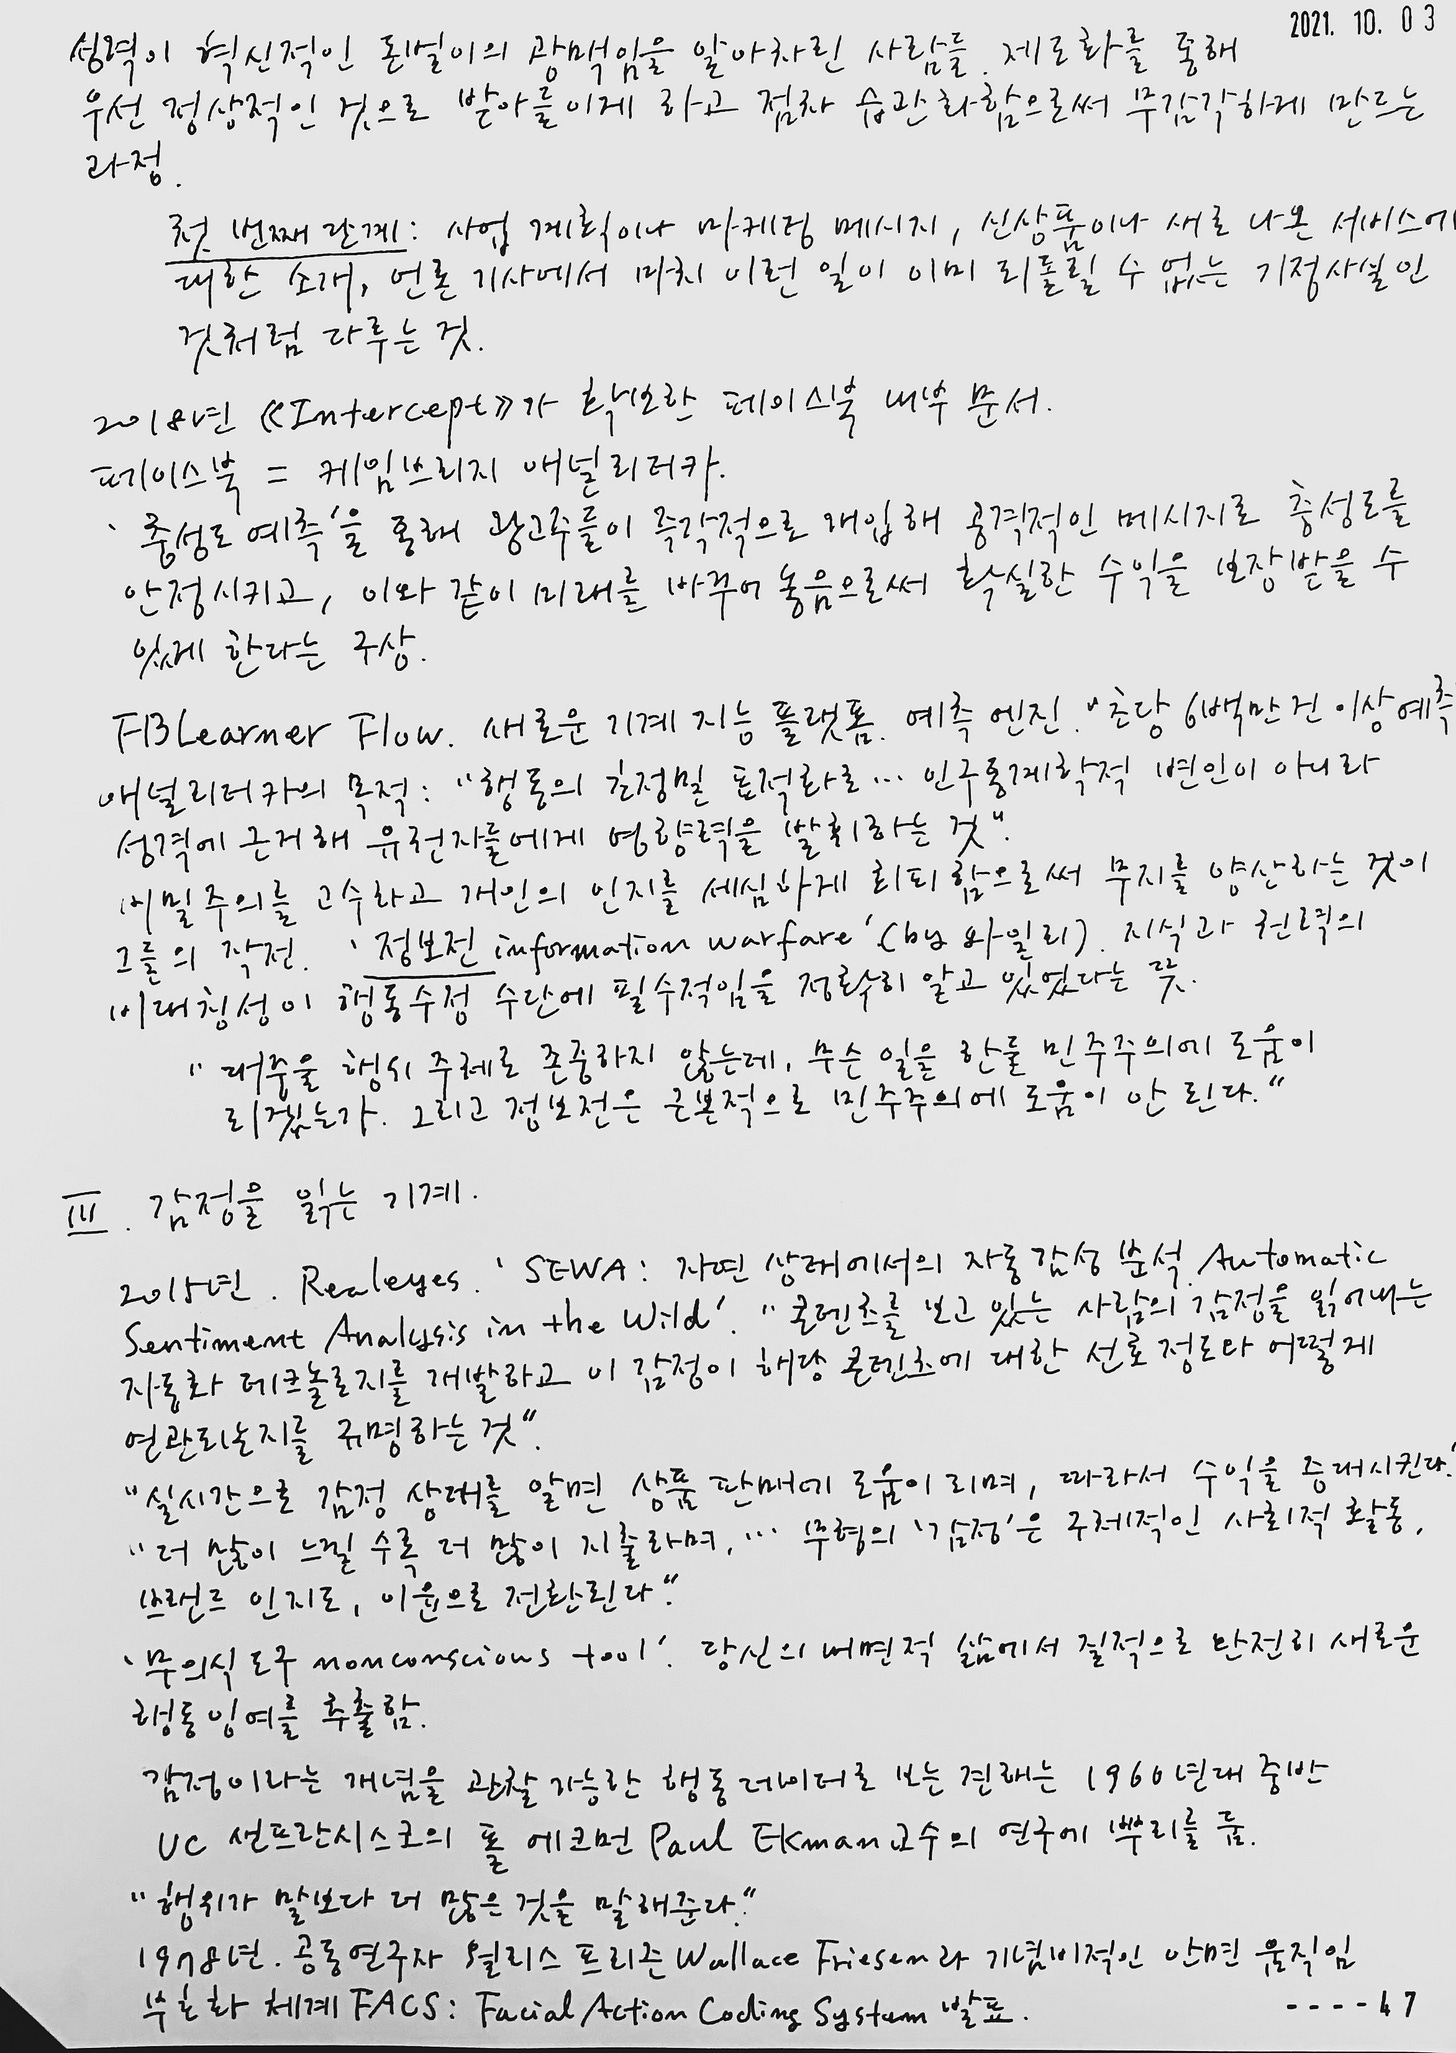 2021. 10. 03
성격이 혁신적인 돈벌이의 광맥임을 알아차린 사람들. 제도화를 통해
우선 정상적인 것으로 받아들이게 하고 점차 습관화함으로써 무감각하게 만드는
과정.
첫 번째 단계: 사업 계획이나 마케팅 메시지, 신상품이나 새로 나온 서비스에
대한 소개, 언론 기사에서 마치 이런 일이 이미 되돌릴 수 없는 기정사실인
것처럼 다루는 것.
2018년 《Intercept》가 확보한 페이스북 내부 문서.
페이스북 = 케임브리지 애널리티카.
'충성도 예측'을 통해 광고주들이 즉각적으로 개입해 공격적인 메시지로 충성도를
안정시키고, 이와 같이 미래를 바꾸어 놓음으로써 확실한 수익을 보장받을 수
있게 한다는 구상.
FBLearner Flow. 새로운 기계 지능 플랫폼. 예측 엔진. "초당 6백만 건 이상 예측"
애널리티카의 목적: "행동의 초정밀 표적화로… 인구통계학적 변인이 아니라
성격에 근거해 유권자들에게 영향력을 발휘하는 것".
비밀주의를 고수하고 개인의 인지를 세심하게 회피함으로써 무지를 양산하는 것이
그들의 작전. '정보전 information warfare' (by 와일리). 지식과 권력의
비대칭성이 행동수정 수단에 필수적임을 정확히 알고 있었다는 뜻.
"대중을 행위 주체로 존중하지 않는데, 무슨 일을 한들 민주주의에 도움이
되겠는가. 그리고 정보전은 근본적으로 민주주의에 도움이 안 된다."
III. 감정을 읽는 기계.
2015년. Realeyes. 'SEWA: 자연 상태에서의 자동 감성 분석. Automatic
Sentiment Analysis in the Wild'. "콘텐츠를 보고 있는 사람의 감정을 읽어내는
자동화 테크놀로지를 개발하고 이 감정이 해당 콘텐츠에 대한 선호 정도와 어떻게
연관되는지를 규명하는 것".
"실시간으로 감정 상태를 알면 상품 판매에 도움이 되며, 따라서 수익을 증대시킨다."
"더 많이 느낄 수록 더 많이 지출하며, … 무형의 '감정'은 구체적인 사회적 활동,
브랜드 인지도, 이윤으로 전환된다."
'무의식 도구 nonconscious tool'. 당신의 내면적 삶에서 질적으로 완전히 새로운
행동잉여를 추출함.
감정이라는 개념을 관찰 가능한 행동 데이터로 보는 견해는 1960년대 중반
UC 샌프란시스코의 폴 에크먼 Paul Ekman 교수의 연구에 뿌리를 둠.
"행위가 말보다 더 많은 것을 말해준다."
1978년. 공동연구자 월리스 프리즌 Wallace Friesen과 기념비적인 안면 움직임
부호화 체계 FACS: Facial Action Coding System 발표.
----47